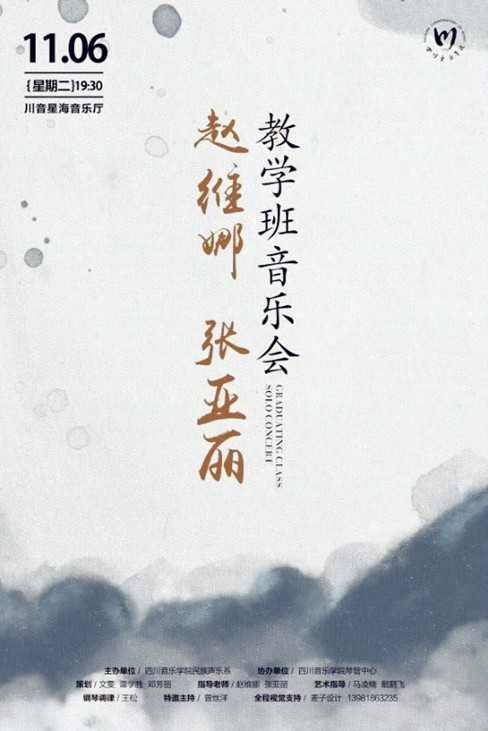 11.06
{星期二}19:30
川音星海音乐厅
教学班音乐会
赵维娜 张亚丽
GRADUATING CLASS
SOLO CONCERT
主办单位 / 四川音乐学院民族声乐系 协办单位 / 四川音乐学院琴管中心
策划 / 文雯 谭学胜 邓芳丽 指导老师 / 赵维娜 张亚丽 艺术指导 / 马凌楠 戴鹏飞
钢琴调律 / 王松 特邀主持 / 曾丝洋 全程视觉支持 / 麦子设计 13981863235